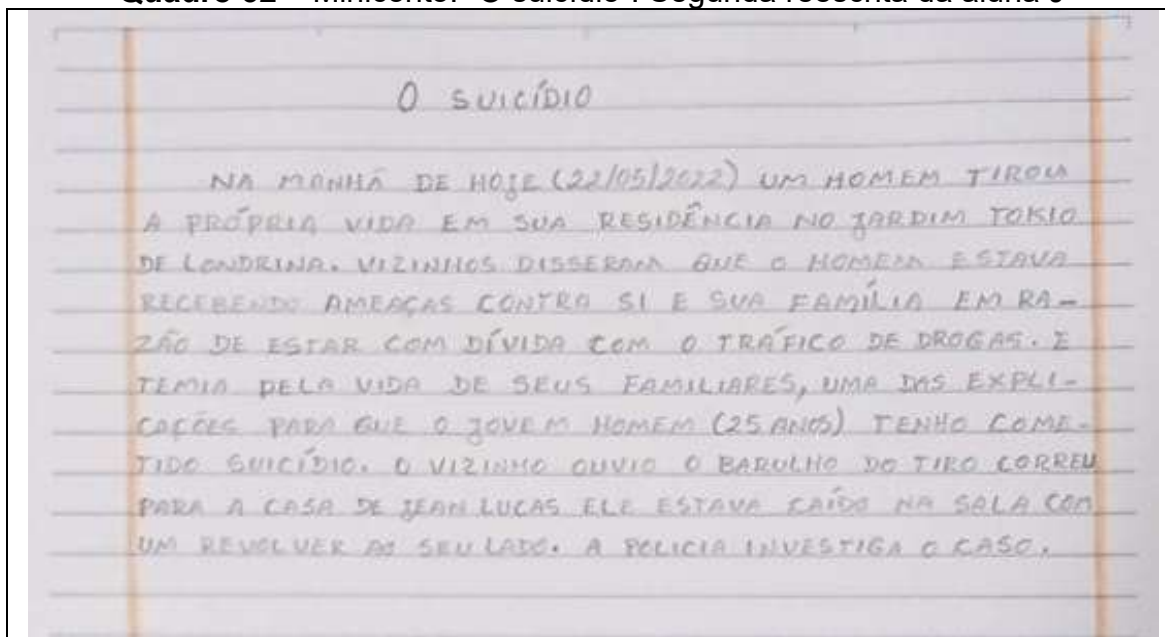 O SUICÍDIO
NA MANHÃ DE HOJE (22/05/2022) UM HOMEM TIROU
A PRÓPRIA VIDA EM SUA RESIDÊNCIA NO JARDIM TOKIO
DE LONDRINA. VIZINHOS DISSERAM QUE O HOMEM ESTAVA
RECEBENDO AMEAÇAS CONTRA SI E SUA FAMÍLIA EM RA-
ZÃO DE ESTAR COM DÍVIDA COM O TRÁFICO DE DROGAS. E
TEMIA PELA VIDA DE SEUS FAMILIARES, UMA DAS EXPLI-
CAÇÕES PARA QUE O JOVEM HOMEM (25 ANOS) TENHO COME-
TIDO SUICÍDIO. O VIZINHO OUVIO O BARULHO DO TIRO CORREU
PARA A CASA DE JEAN LUCAS ELE ESTAVA CAÍDO NA SALA COM
UM REVOLVER AO SEU LADO. A POLICIA INVESTIGA O CASO.